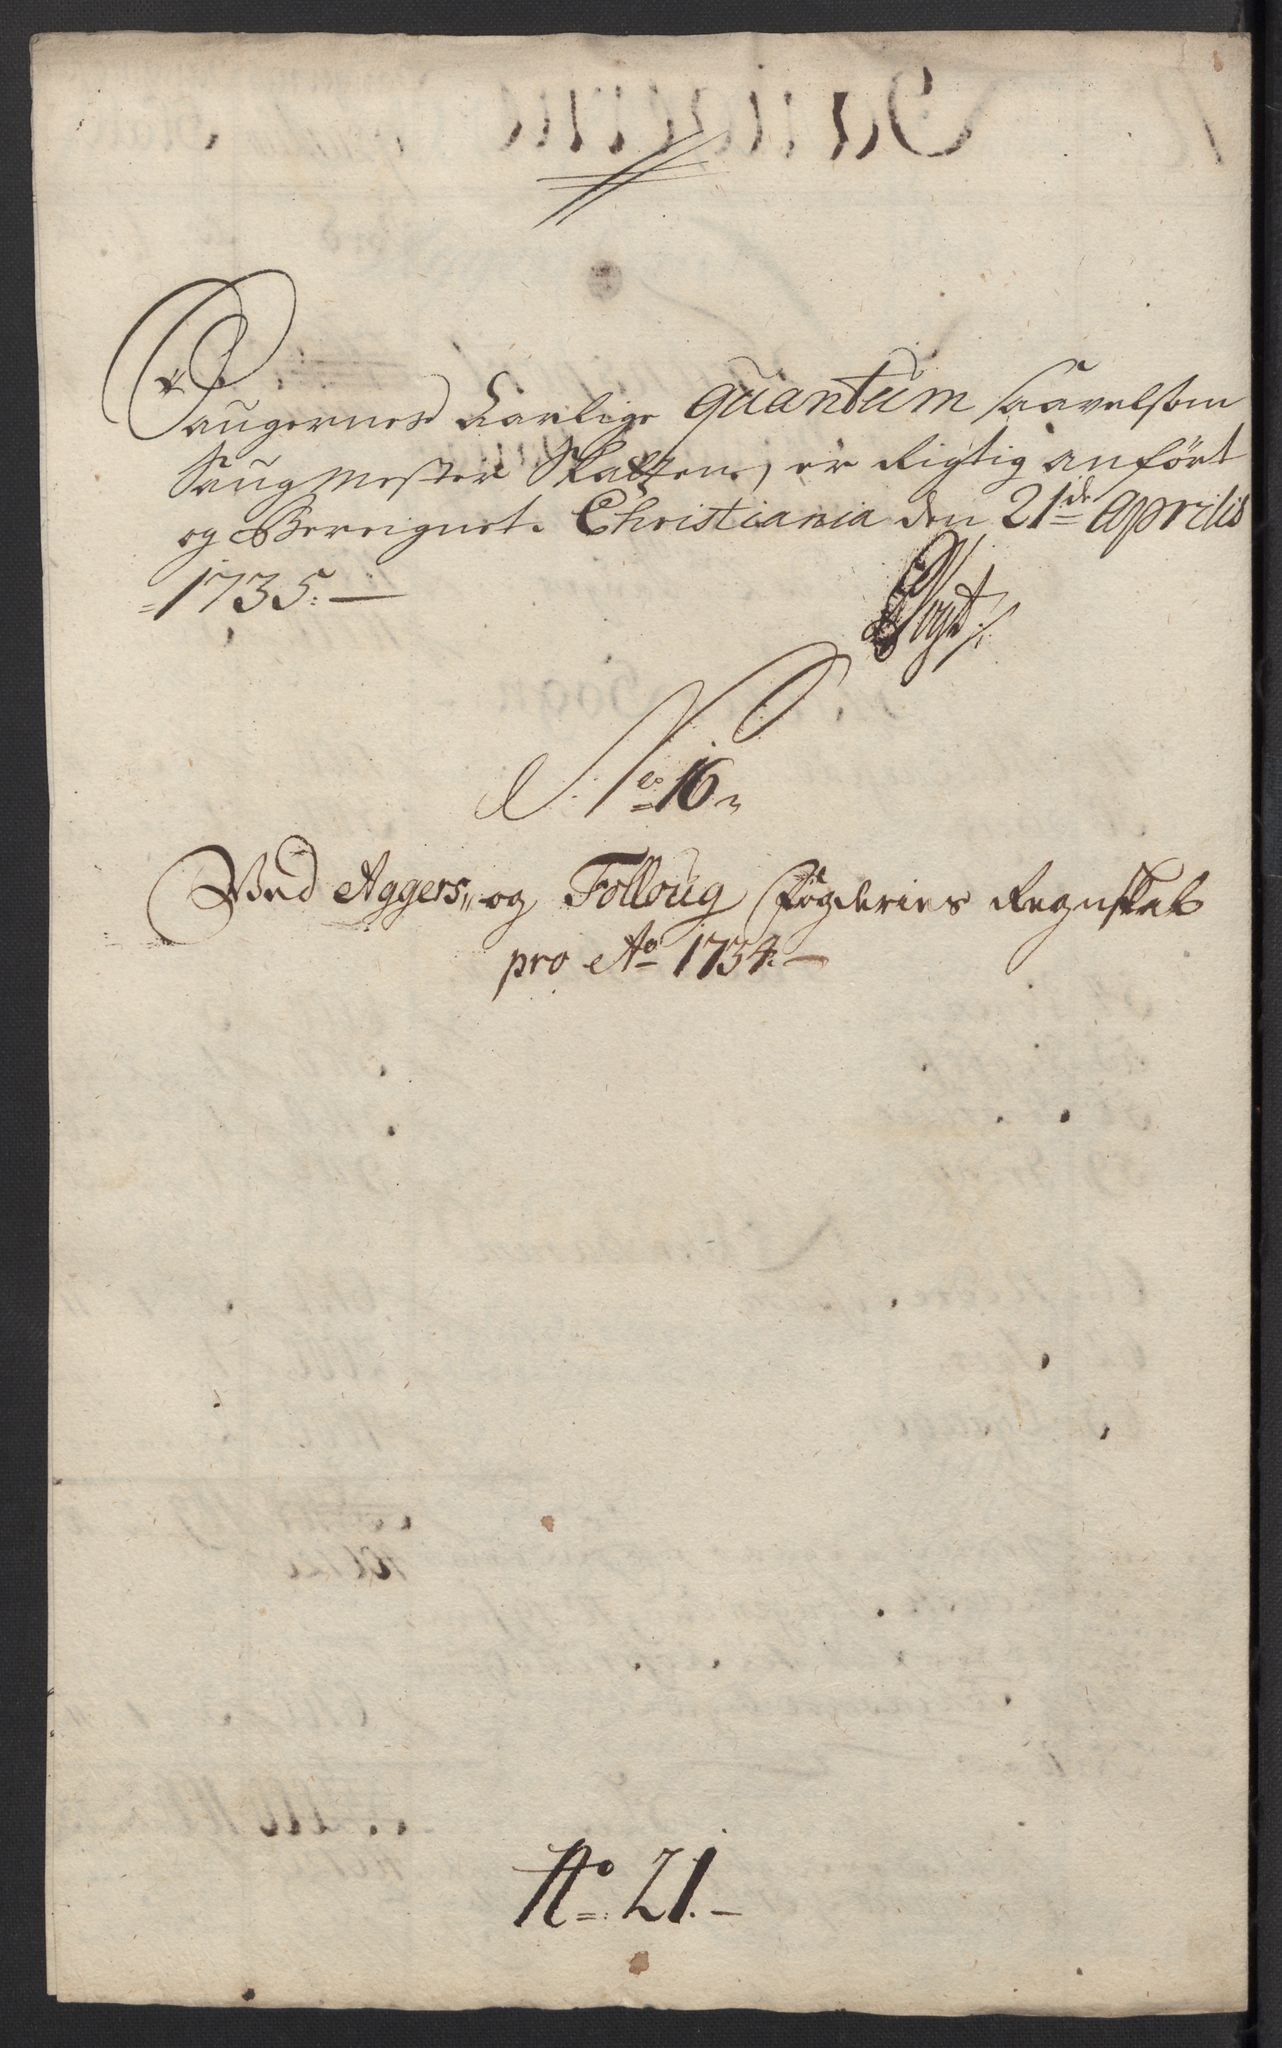 Saugernes Aarlige quantum saavelsom
Saug Mester Skatten, er Rigtig anført
og Bereignet. Christiania den 21de Aprilis
1735.
Vogt
No 16
Ved Aggers- og Folloug Fogderies Regnskab
pro Ao 1734.
No. 21.